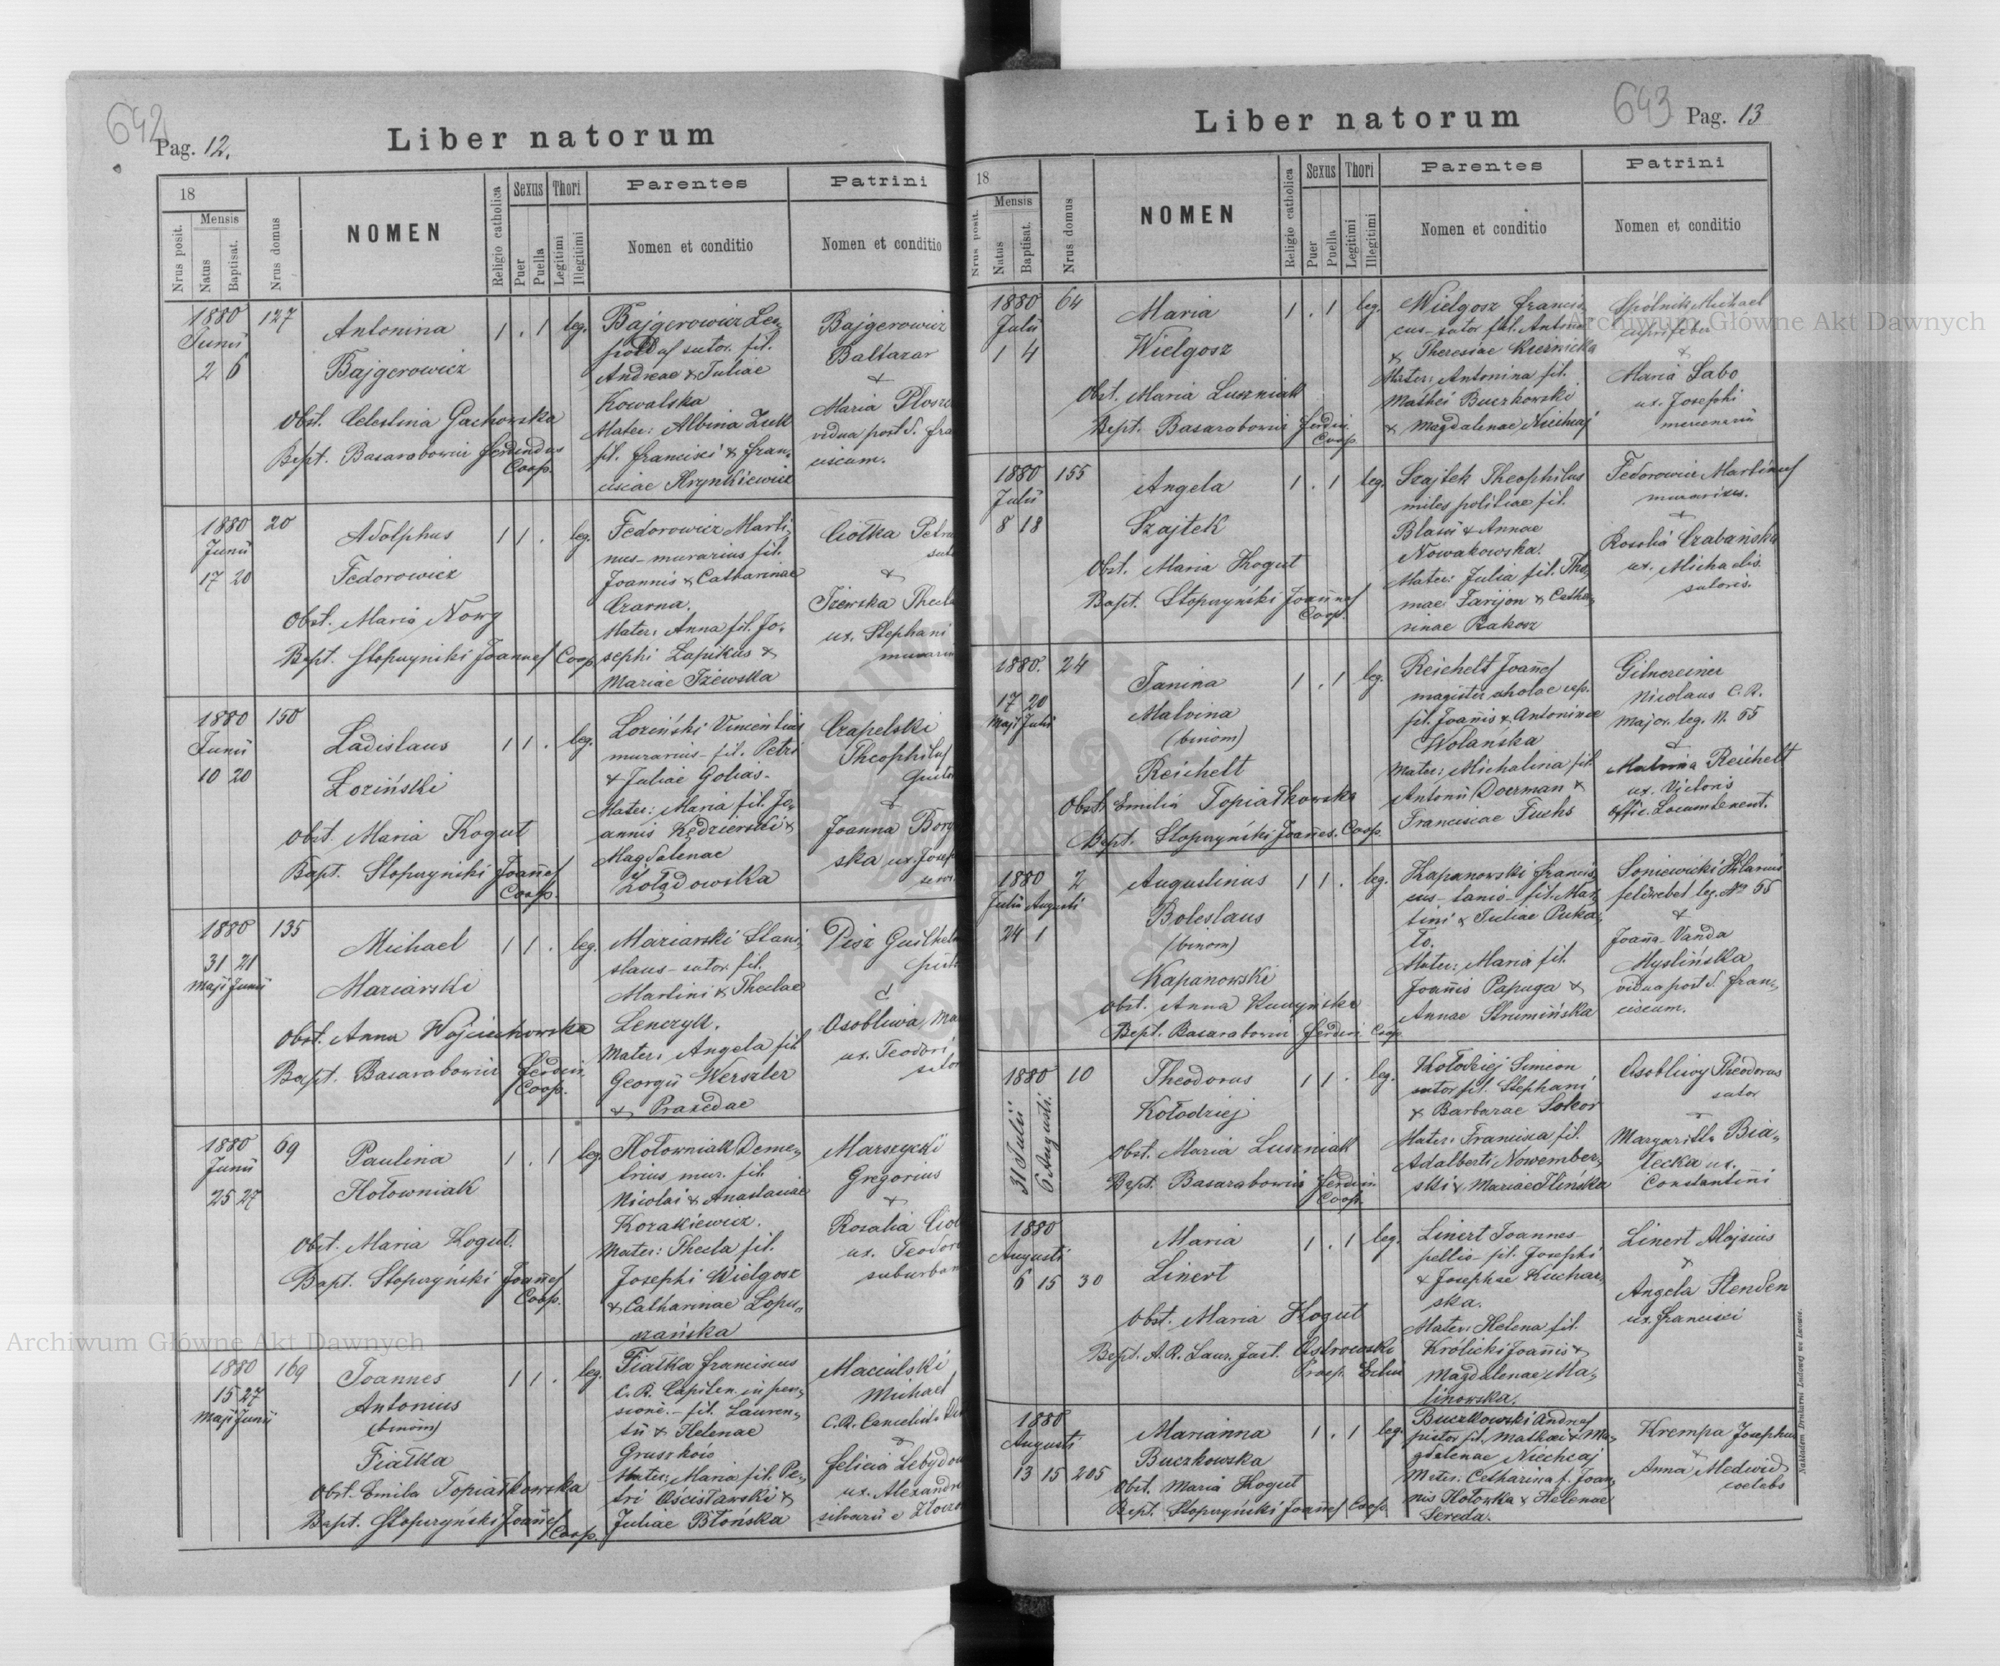 642
Pag. 12.
Liber natorum
18
Nrus posit.
Mensis
Natus
Baptisat.
Nrus domus
NOMEN
Religio catholica
Sexus
Puer
Puella
Thori
Legitimi
Illegitimi
Parentes
Nomen et conditio
Patrini
Nomen et conditio
1880 127
Junii
2 6
Antonina
Bajgerowicz
1 . 1 leg.
Obst. Celestina Gachowska
Bapt. Basarabowicz Ferdindus
Coop.
Bajgerowicz Leo
poldus sutor. fil.
Andreae & Juliae
Kowalska
Mater: Albina Zuk
fil. Francisci & Fran
ciscae Hrynkiewicz
Bajgerowicz
Baltazar
&
Maria
vidua post d. Fra
ciscum.
1880 20
Junii
17 20
Adolphus
Fedorowicz
1 1 . leg.
Obst. Maria Nowy
Bapt. Stopczyński Joannes Coop.
Fedorowicz Marti
nus murarius fil.
Joannis & Catharinae
Czarna.
Mater: Anna fil. Jo
sephi Lapikus &
Mariae Iżewska
Ciołka
&
Iżewska Thecla
ux. Stephani
1880 150
Junii
10 20
Ladislaus
Łoziński
1 1 . leg.
Obst. Maria Kogut
Bapt. Stopczyński Joañes
Coop.
Łoziński Vincentius
murarius fil. Petri
& Juliae Golias
Mater: Maria fil. Jo
annis Kędzierski &
Magdalenae
Żołądowska
Czapelski
Theophilus
&
Joanna
ska ux.
1880 135
31 21
Maji Junii
Michael
Maziarski
1 1 . leg.
Obst. Anna Wojciechowska
Bapt. Basarabowicz Ferdin.
Coop.
Maziarski Stani
slaus sutor. fil.
Martini & Theclae
Lenczyk.
Mater: Angela fil.
Georgii Werszler
& Praxedae
Pisz
&
Osobliwa
ux. Teodori
1880 69
Junii
25 27
Paulina
Hołowniak
1 . 1 leg.
Obst. Maria Kogut.
Bapt. Stopczyński Joañes
Coop.
Hołowniak Deme
trius mur. fil.
Nicolai & Anastasiae
Kozakiewicz.
Mater: Thecla fil.
Josephi Wielgosz
& Catharinae Łopu
szańska
Marszycki
Gregorius
&
Rosalia
ux.
1880 169
15 27
Maji Junii
Joannes
Antonius
(binom)
Fiałka
1 1 . leg.
Obst. Emila Topiałkowska
Bapt. Stopczyński Joañes
Coop.
Fiałka Franciscus
C. R. Capitan in pen
sione. fil. Lauren
tii & Helenae
Mater: Maria fil. Pe
tri Ościsławski &
Juliae Błońska
Maciulski
Michael
C. R.
&
Felicia
ux.
643
Pag. 13
Liber natorum
18
Nrus posit.
Mensis
Natus
Baptisat.
Nrus domus
NOMEN
Religio catholica
Sexus
Puer
Puella
Thori
Legitimi
Illegitimi
Parentes
Nomen et conditio
Patrini
Nomen et conditio
1880 64
Julii
1 4
Maria
Wielgosz
1 . 1 leg.
Obst. Maria Luszniak
Bapt. Basarabowicz Ferdin.
Coop.
Wielgosz Francis
cus sutor fil. Antoni
& Theresiae
Mater: Antonina fil.
Mathei Buczkowski
& Magdalenae Niechcaj
Spólnik Michael
&
Maria Sabo
ux. Josephi
mercenarii
1880 155
Julii
8 18
Angela
Szajtek
1 . 1 leg.
Obst. Maria Kogut
Bapt. Stopczyński Joañnes
Coop.
Szajtek Theophilus
miles politiae fil.
Blasii & Annae
Nowakowska.
Mater: Julia fil. Tho
mae Farijon & Catha
rinae Rakosz
Fedorowicz Martinus
murarius.
&
Rosalia Czabańska
ux. Michaelis
sutoris.
1880. 24
17 20
Maji Julii
Janina
Malvina
(binom)
Reichelt
1 . 1 leg.
Obst. Emilia Topiałkowska
Bapt. Stopczyński Joañes. Coop.
Reichelt Joañes
magister
fil. Joañis & Antoninae
Wolańska
Mater: Michalina fil.
Antonii &
Franciscae Fuchs
Nicolaus C. R.
major. leg. N. 55
&
Malvina Reichelt
ux. Victoris
offic. Locumtenent.
1880 2
Julii Augusti
24 1
Augustinus
Boleslaus
(binom)
Kapanowski
1 1 . leg.
Obst. Anna
Bapt. Basarabowicz Ferdin. Coop.
Kapanowski Francis
cus fil. Mar
tini & Juliae
Mater: Maria fil.
Joañis Papuga &
Annae Strumińska
Soniewicki Hilarius
feldwebel leg. No 55
&
Joaña Vanda
Myślińska
vidua post d. Fran
ciscum.
1880 10
31 Julii
6 Augusti.
Theodorus
Kołodziej
1 1 . leg.
Obst. Maria Luszniak
Bapt. Basarabowicz Ferdin.
Coop.
Kołodziej Simeon
sutor fil. Stephani
& Barbarae Sokor
Mater: Francisca fil.
Adalberti Nowember
ski & Mariae Ilińska
Osobliwy Theodorus
sutor
&
Margaritha Bia
łecka ux.
Constantini
1880
Augusti
6 15 30
Maria
Linert
1 . 1 leg.
Obst. Maria Kogut
Bapt. A. R. Laur. Just. Ostrowski
Linert Joannes
pellio fil. Josephi
& Josephae Kuchar
ska.
Mater: Helena fil.
Królicki Joañis &
Magdalenae Ma
linowska.
Linert Alojsius
&
Angela Stenden
ux. Francisci
1880
Augusti
13 15 205
Marianna
Buczkowska
1 . 1 leg.
Obst. Maria Kogut
Bapt. Stopczyński Joañes Coop.
Buczkowski Andreas
pictor fil. Mathaei & Ma
gdalenae Niechcaj
Mater: Catharina f. Joan
nis Hołowka & Helenae
Sereda.
Krempa Josephus
&
Anna Medwid
coelebs
Nakładem Drukarni Ludowej we Lwowie.
Archiwum Główne Akt Dawnych
Archiwum Główne Akt Dawnych